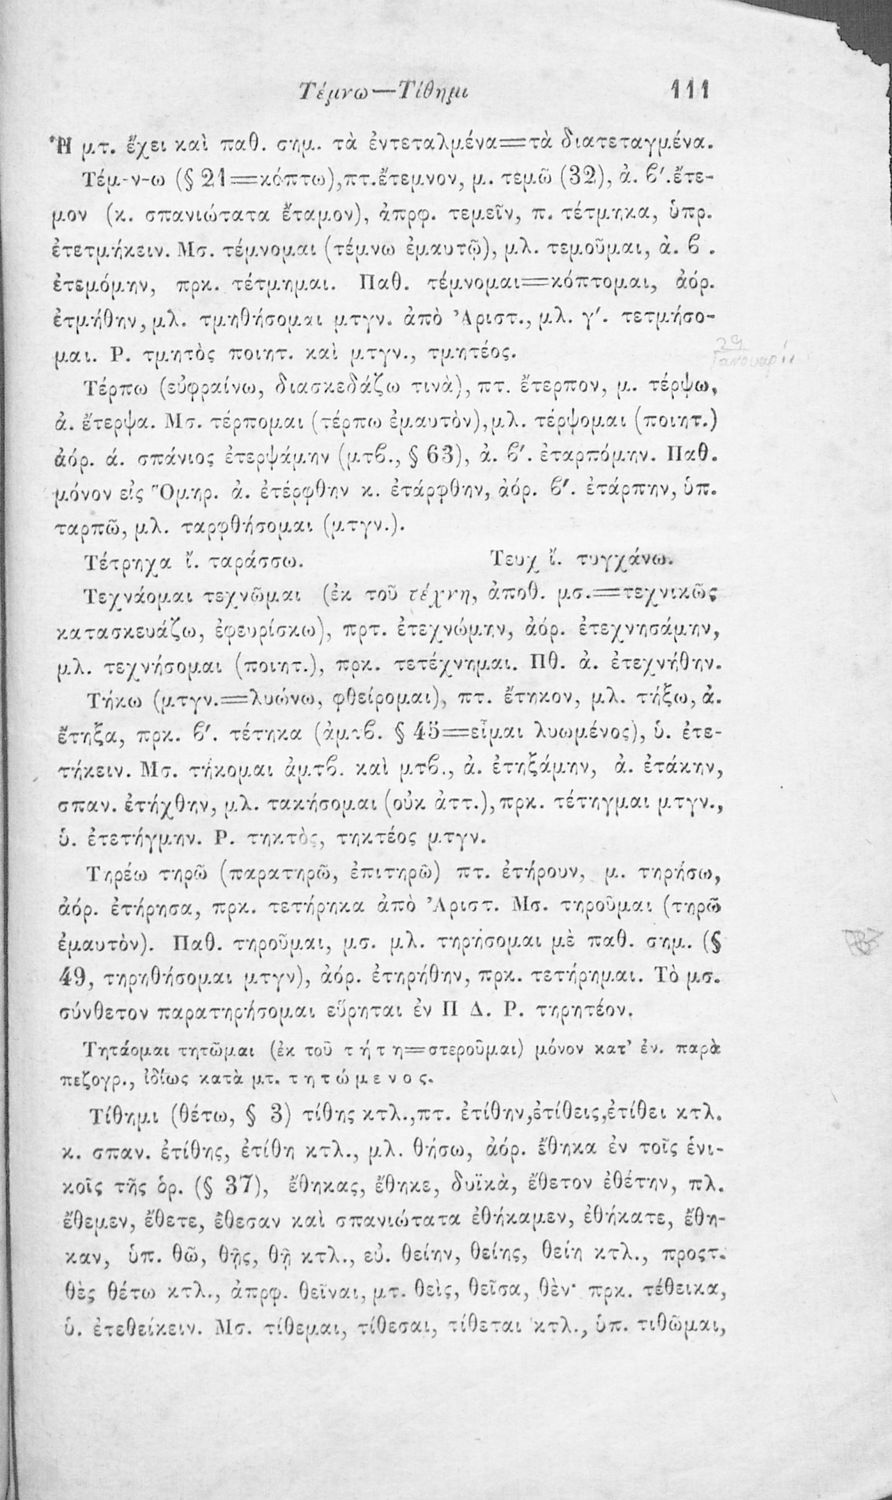 Τέμνω—Τίθημι 111
Ἡ μτ. ἔχει καὶ παθ. σημ. τὰ ἐντεταλμένα=τὰ διατεταγμένα.
Τέμ-ν-ω (§ 21=κόπτω),πτ.ἔτεμνον, μ. τεμῶ (32), ἀ. β′.ἔτε-
μον (κ. σπανιώτατα ἔταμον), ἀπρφ. τεμεῖν, π. τέτμηκα, ὑπρ.
ἐτετμήκειν. Μσ. τέμνομαι (τέμνω ἐμαυτῷ), μλ. τεμοῦμαι, ἀ. β .
ἐτεμόμην, πρκ. τέτμημαι. Παθ. τέμνομαι=κόπτομαι, ἀόρ.
ἐτμήθην, μλ. τμηθήσομαι μτγν. ἀπὸ Ἀριστ., μλ. γ′. τετμήσο-
μαι. Ρ. τμητὸς ποιητ. καὶ μτγν., τμητέος.
29
Ιανουαρί
Τέρπω (εὐφραίνω, διασκεδάζω τινὰ), πτ. ἔτερπον, μ. τέρψω,
ἀ. ἔτερψα. Μσ. τέρπομαι (τέρπω ἐμαυτὸν),μλ. τέρψομαι (ποιητ.)
ἀόρ. ά. σπάνιος ἐτερψάμην (μτβ., § 63), ἀ. β′. ἐταρπόμην. Παθ.
μόνον εἰς Ὅμηρ. ἀ. ἐτέρφθην κ. ἐτάρφθην, ἀόρ. β′. ἐτάρπην, ὑπ.
ταρπῶ, μλ. ταρφθήσομαι (μτγν.).
Τέτρηχα ἴ. ταράσσω. Τευχ ἴ. τυγχάνω.
Τεχνάομαι τεχνῶμαι (ἐκ τοῦ τέχνη, ἀποθ. μσ.=τεχνικῶς
κατασκευάζω, ἐφευρίσκω), πρτ. ἐτεχνώμην, ἀόρ. ἐτεχνησάμην,
μλ. τεχνήσομαι (ποιητ.), πρκ. τετέχνημαι. Πθ. ἀ. ἐτεχνήθην.
Τήκω (μτγν.=λυώνω, φθείρομαι), πτ. ἔτηκον, μλ. τήξω, ἀ.
ἔτηξα, πρκ. β′. τέτηκα (ἀμτβ. § 45=εἶμαι λυωμένος), ὑ. ἐτε-
τήκειν. Μσ. τήκομαι ἀμτβ. καὶ μτβ., ἀ. ἐτηξάμην, ἀ. ἐτάκην,
σπαν. ἐτήχθην, μλ. τακήσομαι (οὐκ ἀττ.),πρκ. τέτηγμαι μτγν.,
ὑ. ἐτετήγμην. Ρ. τηκτὸς, τηκτέος μτγν.
Τηρέω τηρῶ (παρατηρῶ, ἐπιτηρῶ) πτ. ἐτήρουν, μ. τηρήσω,
ἀόρ. ἐτήρησα, πρκ. τετήρηκα ἀπὸ Ἀριστ. Μσ. τηροῦμαι (τηρῶ
ἐμαυτὸν). Παθ. τηροῦμαι, μσ. μλ. τηρήσομαι μὲ παθ. σημ. (§
49, τηρηθήσομαι μτγν), ἀόρ. ἐτηρήθην, πρκ. τετήρημαι. Τὸ μσ.
σύνθετον παρατηρήσομαι εὕρηται ἐν Π Δ. Ρ. τηρητέον.
Τητάομαι τητῶμαι (ἐκ τοῦ τ ή τ η=στεροῦμαι) μόνον κατ’ ἐν. παρὰ
πεζογρ., ἰδίως κατὰ μτ. τ η τ ώ μ ε ν ο ς.
Τίθημι (θέτω, § 3) τίθης κτλ.,πτ. ἐτίθην,ἐτίθεις,ἐτίθει κτλ.
κ. σπαν. ἐτίθης, ἐτίθη κτλ., μλ. θήσω, ἀόρ. ἔθηκα ἐν τοῖς ἑνι-
κοῖς τῆς ὁρ. (§ 37), ἔθηκας, ἔθηκε, δυϊκὰ, ἔθετον ἐθέτην, πλ.
ἔθεμεν, ἔθετε, ἔθεσαν καὶ σπανιώτατα ἐθήκαμεν, ἐθήκατε, ἔθη-
καν, ὑπ. θῶ, θῇς, θῇ κτλ., εὐ. θείην, θείης, θείη κτλ., προςτ.
θὲς θέτω κτλ., ἀπρφ. θεῖναι, μτ. θεὶς, θεῖσα, θὲν· πρκ. τέθεικα,
ὑ. ἐτεθείκειν. Μσ. τίθεμαι, τίθεσαι, τίθεται κτλ., ὑπ. τιθῶμαι,